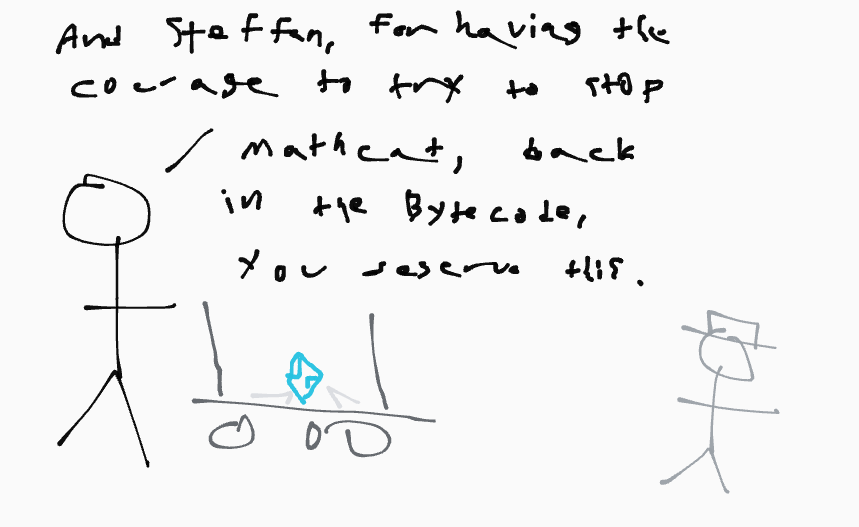 And Steffen, For having the
courage to try to stop
mathcat, back
in the Bytecode,
You reserve this.